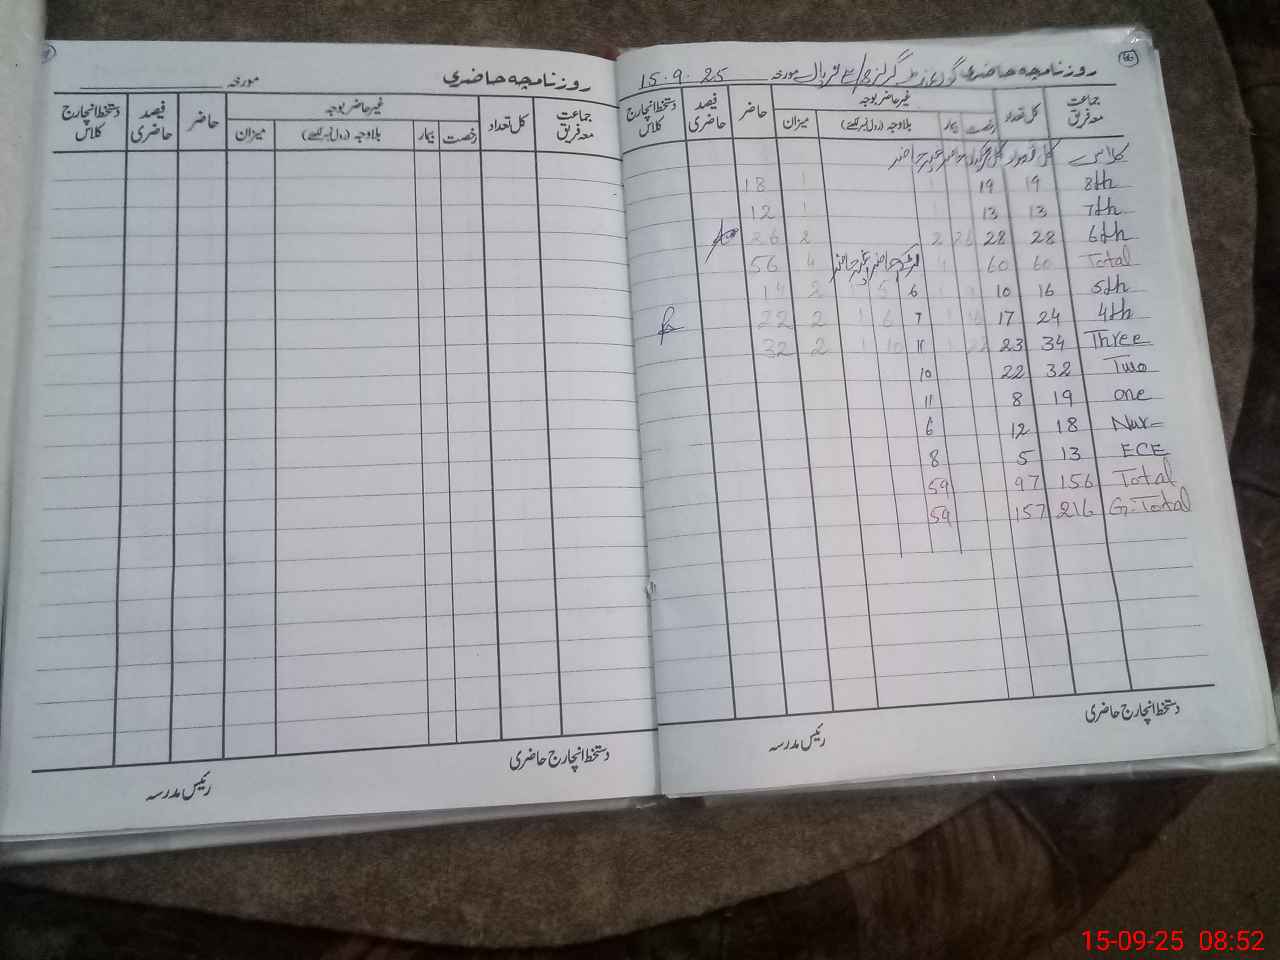 روزنامچہ حاضری گورنمنٹ گرلز مورخہ 15.9.25
جماعت معہ فریق کل تعداد غیر حاضر بوجہ حاضر فیصد حاضری دستخط انچارج کلاس
رخصت بیمار بلاوجہ (رول نمبر لکھیے) میزان
کلاس کل تعداد کل گرلز حاضر غیر حاضر
8th 19 19 1 1 18
7th 13 13 1 1 12
6th 28 28 26 2 2 26
Total 60 60 1 لڑکے حاضر غیر حاضر 4 56
5th 16 10 1 1 6 5 1 2 14
4th 24 17 16 1 7 6 1 2 22
Three 34 23 22 1 11 10 1 2 32
Two 32 22 10
One 19 8 11
Nur- 18 12 6
ECE 13 5 8
Total 156 97 59
G.Total 216 157 59
دستخط انچارج حاضری
رئیس مدرسہ
روزنامچہ حاضری مورخہ
جماعت معہ فریق کل تعداد غیر حاضر بوجہ حاضر فیصد حاضری دستخط انچارج کلاس
رخصت بیمار بلاوجہ (رول نمبر لکھیے) میزان
دستخط انچارج حاضری
رئیس مدرسہ
15-09-25 08:52